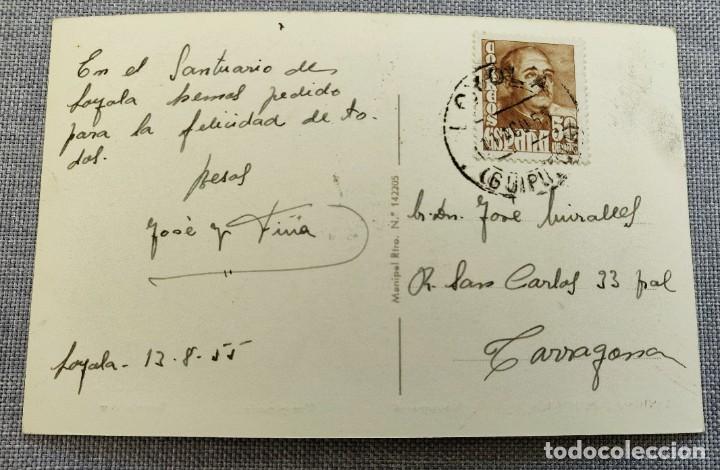 En el Santuario de
Loyala hemos pedido
para la felicidad de to-
dos.
besos
José y Tina
Loyala - 13-8-55
Manipel Rtro. N.º 142205
CORREOS
ESPAÑA
50
LOYOLA
(GUIPU
Sr. Dn. José Miralles
R. San Carlos 33 pal
Tarragona
todocoleccion